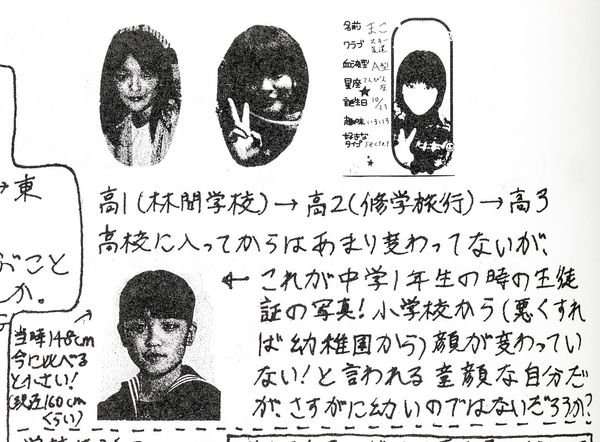 名前 まこ
クラブ
血液型 A型
星座 てんびん座
誕生日 10/11
趣味 いろいろ
好きなタイプ
高1(林間学校)→高2(修学旅行)→高3
高校に入ってからはあまり変わってないが、
←これが中学1年生の時の生徒
証の写真!小学校から(悪くすれ
ば幼稚園から)顔が変わってい
ない!と言われる童顔な自分だ
が、さすがに幼いのではないだろうか?
当時148cm
今に比べる
と小さい!
(現在160cm
くらい)
→東
こと
か。